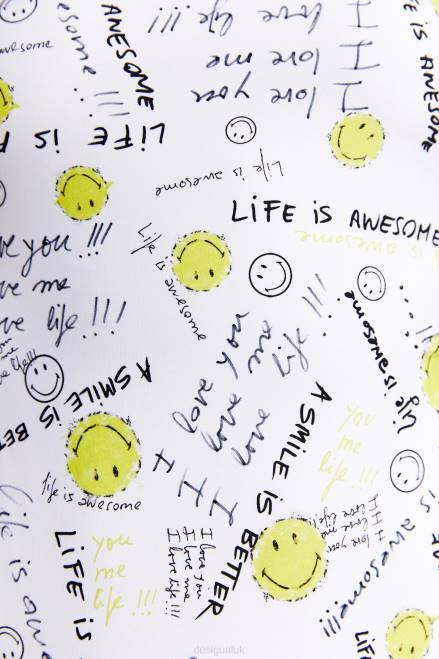 esome
awesome !!!
AWESOME
I love life !!!
I love me
I love you
is AWESOME
awesome
LiFE is A
Life is awesome
LiFE is AWESOME
is awesome
ve you !!!
ve me
ve life !!!
Life is awesome
me
life!!!
A SMiLE iS BET
I love you
I love me
I love life !!!
Life is awesome
A SMiLE iS BETTER
you
me
life !!!
life is awesome
I love you
I love me
I love life!!!
LiFE is
you
me
life !!!
I love you
I love me
I love life!!!
life is aw
is awesome!!!
LiFE
desigualuk